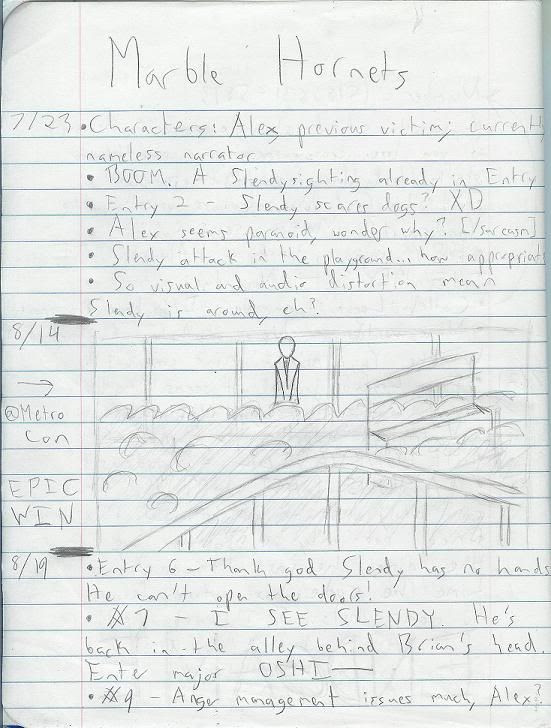 Marble Hornets
7/23 • Characters: Alex previous victim; currently
nameless narrator
• BOOM. A Slendysighting already in Entry
• Entry 2 - Slendy scares dogs? XD
• Alex seems paranoid, wonder why? [/sarcasm]
• Slendy attack in the playground... how appropriate
• So visual and audio distortion mean
Slendy is around, eh?
8/14
→
@Metro
Con
EPIC
WIN
8/19 • Entry 6 - Thank god Slendy has no hands
He can't open the doors!
• #7 - I SEE SLENDY. He's
back in the alley behind Brian's head.
Enter major OSHI—
• #9 - Anger management issues much, Alex?